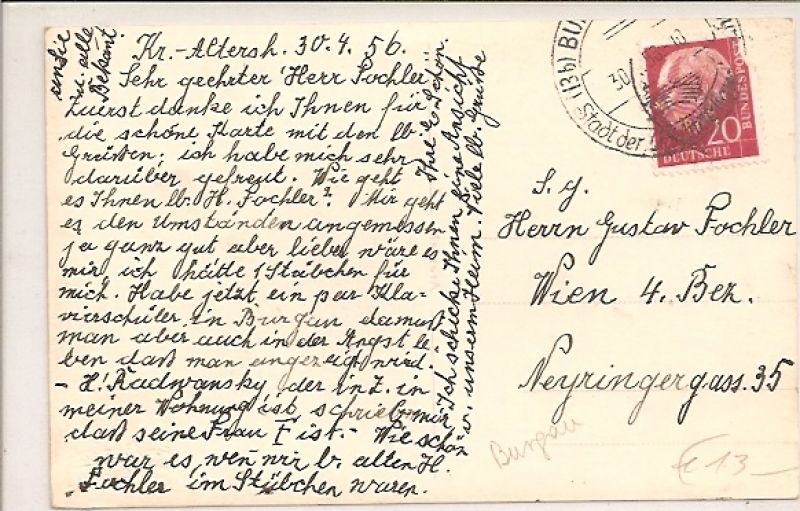 Kr.-Altersh. 30.4.56.
Sehr geehrter Herr Fochler
Zuerst danke ich Ihnen für
die schöne Karte mit den lb.
Grüßen; ich habe mich sehr
darüber gefreut. Wie geht
es Ihnen lb. H. Fochler? Mir geht
es den Umständen angemessen
ja ganz gut aber lieber wäre es
mir, ich hätte 1 Stübchen für
mich. Habe jetzt ein par Kla-
vierschüler in Burgau da muß
man aber auch in der Angst le
ben daß man angezeigt wird.
- H! Radwansky der in
meiner Wohnung ist schrieb mir
daß seine Frau ist. - Wie schön
war es, wen wir b. alten H.
Fochler im Stübchen waren.
Ich schicke Ihnen eine Ansicht
v. unserm Heim. Viele lb. Grüße
an Sie
u. alle
Bekant.
(13b) BU
30
Stadt der
20
DEUTSCHE
BUNDESPOST
S. g.
Herrn Gustav Fochler
Wien 4. Bez.
Neyringergass. 35
Burgau
€ 13-